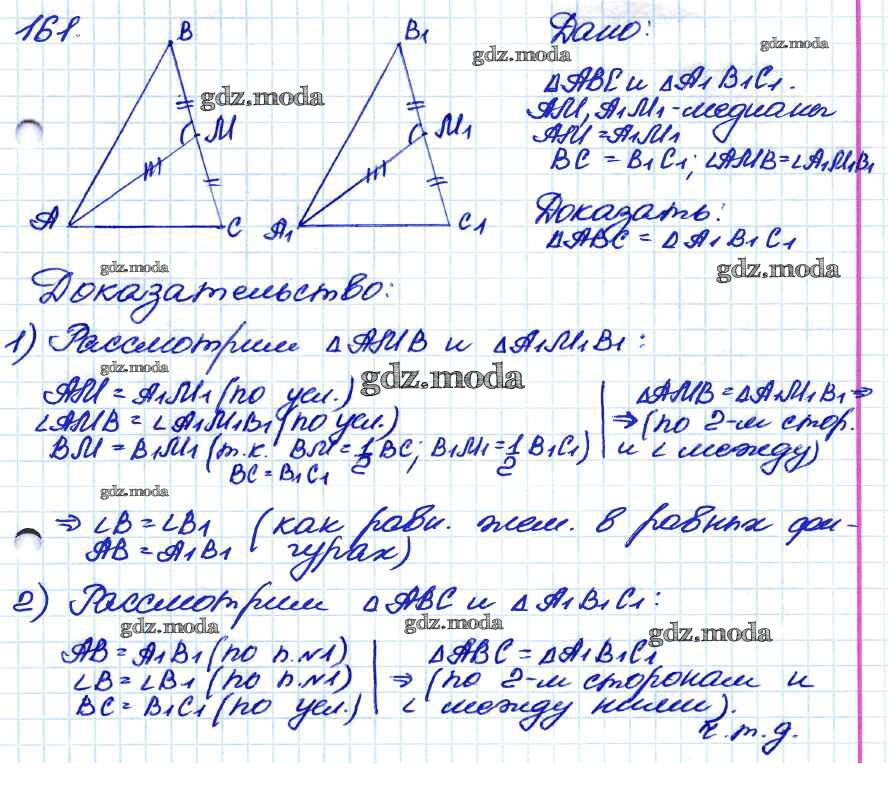 161.
B
B1
M
M1
A
C
A1
C1
Дано:
△ABC и △A1B1C1.
AM, A1M1 - медианы
AM = A1M1
BC = B1C1; ∠AMB = ∠A1M1B1
Доказать:
△ABC = △A1B1C1
Доказательство:
1) Рассмотрим △AMB и △A1M1B1:
AM = A1M1 (по усл.)
∠AMB = ∠A1M1B1 (по усл.)
BM = B1M1 (т.к. BM = 1/2 BC; B1M1 = 1/2 B1C1)
BC = B1C1
△AMB = △A1M1B1 ⇒
⇒ (по 2-м стор.
и ∠ между)
⇒ ∠B = ∠B1 (как равн. элем. в равных фи-
AB = A1B1 гурах)
2) Рассмотрим △ABC и △A1B1C1:
AB = A1B1 (по п.N1)
∠B = ∠B1 (по п.N1)
BC = B1C1 (по усл.)
△ABC = △A1B1C1
⇒ (по 2-м сторонам и
∠ между ними).
ч.т.д.
gdz.moda
gdz.moda
gdz.moda
gdz.moda
gdz.moda
gdz.moda
gdz.moda
gdz.moda
gdz.moda
gdz.moda
gdz.moda